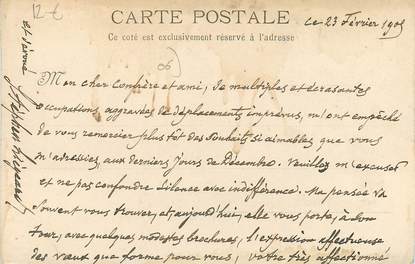 12-€
CARTE POSTALE
Ce coté est exclusivement réservé à l'adresse
ce 23 Février 1905
06)
Mon cher Confrère et ami, de multiples et écrasantes
occupations, aggravées de déplacements imprévus, m'ont empêché
de vous remercier plus tôt des souhaits si aimables que vous
m'adressiez, aux derniers jours de Décembre. Veuillez m'excuser
et ne pas confondre silence avec indifférence. Ma pensée va
souvent vous trouver, et, aujourd'hui, elle vous porte, à son
tour, avec quelques modestes brochures, l'expression affectueuse
des vœux que forme pour vous, votre très affectionné
et dévoué
Stephen